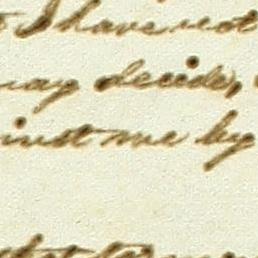 I have not
may decide,
inst me by